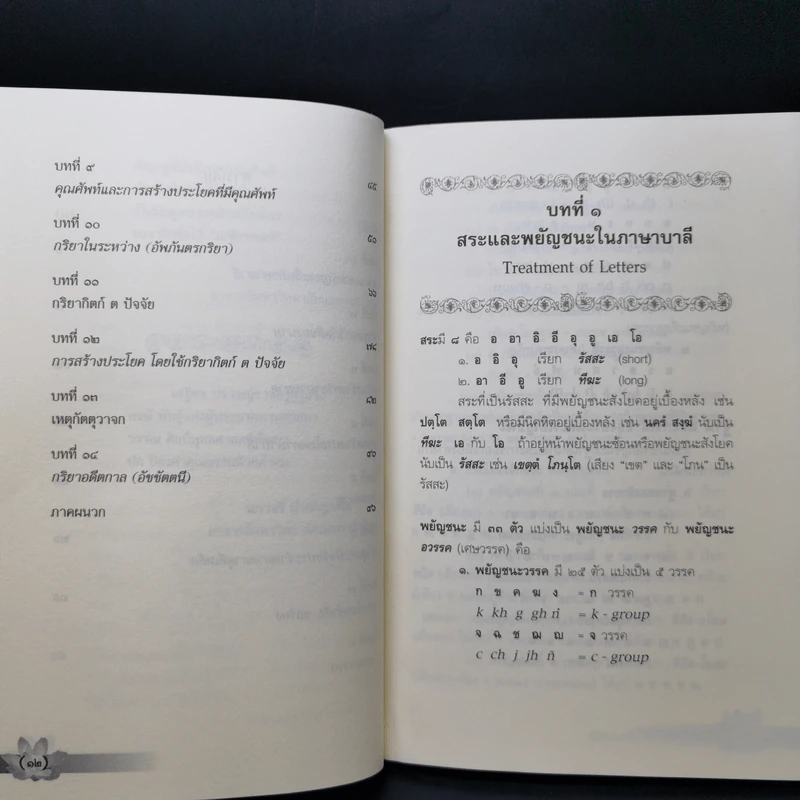 บทที่ ๙
คุณศัพท์และการสร้างประโยคที่มีคุณศัพท์ ๔๕
บทที่ ๑๐
กริยาในระหว่าง (อัพภันตรกริยา) ๕๐
บทที่ ๑๑
กริยากิตก์ ต ปัจจัย ๖๖
บทที่ ๑๒
การสร้างประโยค โดยใช้กริยากิตก์ ต ปัจจัย ๗๘
บทที่ ๑๓
เหตุกัตตุวาจก ๘๒
บทที่ ๑๔
กริยาอดีตกาล (อัชชัตตนี) ๙๐
ภาคผนวก ๙๖
(๑๒)
บทที่ ๑
สระและพยัญชนะในภาษาบาลี
Treatment of Letters
สระมี ๘ คือ อ อา อิ อี อุ อู เอ โอ
๑. อ อิ อุ เรียก รัสสะ (short)
๒. อา อี อู เรียก ทีฆะ (long)
สระที่เป็นรัสสะ ที่มีพยัญชนะสังโยคอยู่เบื้องหลัง เช่น
ปตฺโต สตฺโต หรือมีนิคหิตอยู่เบื้องหลัง เช่น นครํ สงฺฆํ นับเป็น
ทีฆะ เอ กับ โอ ถ้าอยู่หน้าพยัญชนะซ้อนหรือพยัญชนะสังโยค
นับเป็น รัสสะ เช่น เขตฺตํ โภนฺโต (เสียง “เขต” และ “โภน” เป็น
รัสสะ)
พยัญชนะ มี ๓๓ ตัว แบ่งเป็น พยัญชนะ วรรค กับ พยัญชนะ
อวรรค (เศษวรรค) คือ
๑. พยัญชนะวรรค มี ๒๕ ตัว แบ่งเป็น ๕ วรรค
ก ข ค ฆ ง = ก วรรค
k kh g gh ṅ = k - group
จ ฉ ช ฌ ญ = จ วรรค
c ch j jh ñ = c - group